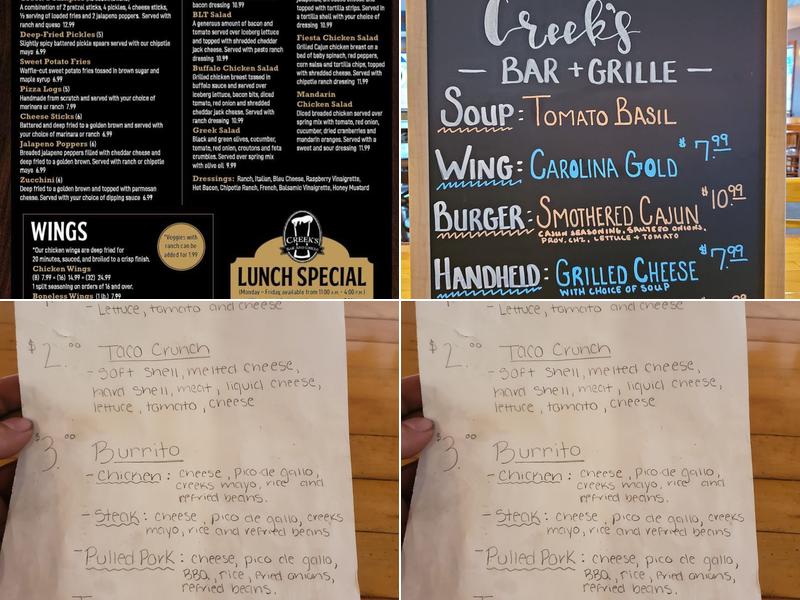 A combination of 2 pretzel sticks, 4 pickles, 4 cheese sticks,
½ serving of loaded fries and 2 jalapeno poppers. Served with
ranch and queso 12.99
Deep-Fried Pickles (5)
Slightly spicy battered pickle spears served with our chipotle
mayo 6.99
Sweet Potato Fries
Waffle-cut sweet potato fries tossed in brown sugar and
maple syrup 6.99
Pizza Logs (5)
Handmade from scratch and served with your choice of
marinara or ranch 7.99
Cheese Sticks (6)
Battered and deep fried to a golden brown and served with
your choice of marinara or ranch 6.99
Jalapeno Poppers (6)
Breaded jalapeno peppers filled with cheddar cheese and
deep fried to a golden brown. Served with ranch or chipotle
mayo 6.99
Zucchini (6)
Deep fried to a golden brown and topped with parmesan
cheese. Served with your choice of dipping sauce 6.99
dressing 10.99
BLT Salad
A generous amount of bacon and
tomato served over iceberg lettuce
and topped with shredded cheddar
jack cheese. Served with pesto ranch
dressing 10.99
Buffalo Chicken Salad
Grilled chicken breast tossed in
buffalo sauce and served over
iceberg lettuce, bacon bits, diced
tomato, red onion and shredded
cheddar jack cheese. Served with
ranch dressing 10.99
Greek Salad
Black and green olives, cucumber,
tomato, red onion, croutons and feta
crumbles. Served over spring mix
with olive oil 9.99
topped with tortilla strips. Served in
a tortilla shell with your choice of
dressing 10.99
Fiesta Chicken Salad
Grilled Cajun chicken breast on a
bed of baby spinach, red peppers,
corn salsa and tortilla chips, topped
with shredded cheese. Served with
chipotle ranch dressing 11.99
Mandarin
Chicken Salad
Diced breaded chicken served over
spring mix with tomato, red onion,
cucumber, dried cranberries and
mandarin oranges. Served with a
sweet and sour dressing 11.99
Dressings: Ranch, Italian, Bleu Cheese, Raspberry Vinaigrette,
Hot Bacon, Chipotle Ranch, French, Balsamic Vinaigrette, Honey Mustard
WINGS
*Our chicken wings are deep fried for
20 minutes, sauced, and broiled to a crisp finish.
Chicken Wings
(8) 7.99 • (16) 14.99 • (32) 24.99
1 split seasoning on orders of 16 and over.
Boneless Wings (1 lb.) 7.99
*Veggies with
ranch can be
added for 1.99
CREEK'S
BAR AND GRILLE
LUNCH SPECIAL
(Monday - Friday, available from 11:00 A.M. - 4:00 P.M.)
Creek's
— BAR + GRILLE —
SOUP: TOMATO BASIL
WING: CAROLINA GOLD $7.99
BURGER: SMOTHERED CAJUN $10.99
CAJUN SEASONING, SAUTEED ONIONS,
PROV. CHZ, LETTUCE + TOMATO
HANDHELD: GRILLED CHEESE $7.99
WITH CHOICE OF SOUP
- Lettuce, tomato and cheese
$2.00 Taco Crunch
- Soft shell, melted cheese,
hard shell, meat, liquid cheese,
lettuce, tomato, cheese
$3.00 Burrito
- Chicken: cheese, pico de gallo,
creeks mayo, rice and
refried beans.
- Steak: cheese, pico de gallo, creeks
mayo, rice and refried beans
- Pulled Pork: cheese, pico de gallo,
BBQ, rice, fried onions,
refried beans.
- Lettuce, tomato and cheese
$2.00 Taco Crunch
- Soft shell, melted cheese,
hard shell, meat, liquid cheese,
lettuce, tomato, cheese
$3.00 Burrito
- Chicken: cheese, pico de gallo,
creeks mayo, rice and
refried beans.
- Steak: cheese, pico de gallo, creeks
mayo, rice and refried beans
- Pulled Pork: cheese, pico de gallo,
BBQ, rice, fried onions,
refried beans.